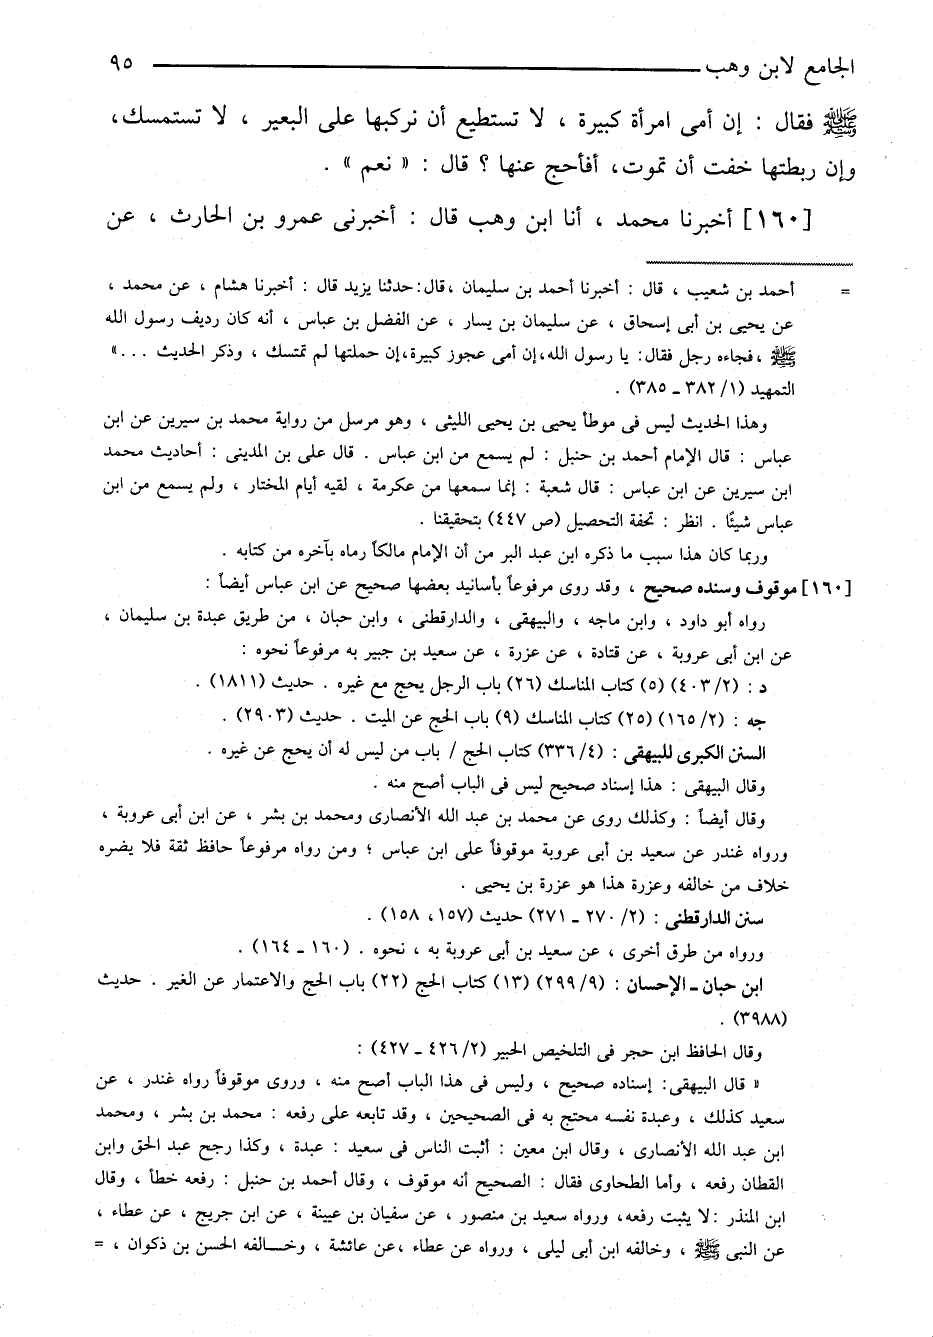 الجامع لابن وهب ٩٥
ﷺ فقال : إن أمى امرأة كبيرة ، لا تستطيع أن نركبها على البعير ، لا تستمسك،
وإن ربطتها خفت أن تموت، أفأحج عنها ؟ قال : « نعم » .
[١٦٠] أخبرنا محمد ، أنا ابن وهب قال : أخبرنى عمرو بن الحارث ، عن
= أحمد بن شعيب ، قال : أخبرنا أحمد بن سليمان ،قال: حدثنا يزيد قال : أخبرنا هشام ، عن محمد ،
عن يحيى بن أبى إسحاق ، عن سليمان بن يسار ، عن الفضل بن عباس ، أنه كان رديف رسول الله
ﷺ ،فجاءه رجل فقال: يا رسول الله،إن أمى عجوز كبيرة،إن حملتها لم تمتسك ، وذكر الحديث ...»
التمهيد (١/ ٣٨٢ ـ ٣٨٥) .
وهذا الحديث ليس فى موطأ يحيى بن يحيى الليثى ، وهو مرسل من رواية محمد بن سيرين عن ابن
عباس : قال الإمام أحمد بن حنبل : لم يسمع من ابن عباس . قال على بن المدينى : أحاديث محمد
ابن سيرين عن ابن عباس : قال شعبة : إنما سمعها من عكرمة ، لقيه أيام المختار ، ولم يسمع من ابن
عباس شيئًا . انظر : تحفة التحصيل (ص ٤٤٧) بتحقيقنا .
وربما كان هذا سبب ما ذكره ابن عبد البر من أن الإمام مالكاً رماه بآخره من كتابه .
[١٦٠] موقوف وسنده صحيح ، وقد روى مرفوعاً بأسانيد بعضها صحيح عن ابن عباس أيضاً :
رواه أبو داود ، وابن ماجه ، والبيهقى ، والدارقطنى ، وابن حبان ، من طريق عبدة بن سليمان ،
عن ابن أبى عروبة ، عن قتادة ، عن عزرة ، عن سعيد بن جبير به مرفوعاً نحوه :
د : (٢/ ٤٠٣) (٥) كتاب المناسك (٢٦) باب الرجل يحج مع غيره . حديث (١٨١١) .
جه : (٢/ ١٦٥) (٢٥) كتاب المناسك (٩) باب الحج عن الميت . حديث (٢٩٠٣) .
السنن الكبرى للبيهقى : (٤/ ٣٣٦) كتاب الحج / باب من ليس له أن يحج عن غيره .
وقال البيهقى : هذا إسناد صحيح ليس فى الباب أصح منه .
وقال أيضاً : وكذلك روى عن محمد بن عبد الله الأنصارى ومحمد بن بشر ، عن ابن أبى عروبة ،
ورواه غندر عن سعيد بن أبى عروبة موقوفاً على ابن عباس ؛ ومن رواه مرفوعاً حافظ ثقة فلا يضره
خلاف من خالفه وعزرة هذا هو عزرة بن يحيى .
سنن الدارقطنى : (٢/ ٢٧٠ ـ ٢٧١) حديث (١٥٧، ١٥٨) .
ورواه من طرق أخرى ، عن سعيد بن أبى عروبة به ، نحوه . (١٦٠ ـ ١٦٤) .
ابن حبان ـ الإحسان : (٩/ ٢٩٩) (١٣) كتاب الحج (٢٢) باب الحج والاعتمار عن الغير . حديث
(٣٩٨٨) .
وقال الحافظ ابن حجر فى التلخيص الحبير (٢/ ٤٢٦ ـ ٤٢٧) :
« قال البيهقى: إسناده صحيح ، وليس فى هذا الباب أصح منه ، وروى موقوفاً رواه غندر ، عن
سعيد كذلك ، وعبدة نفسه محتج به فى الصحيحين ، وقد تابعه على رفعه : محمد بن بشر ، ومحمد
ابن عبد الله الأنصارى ، وقال ابن معين : أثبت الناس فى سعيد : عبدة ، وكذا رجح عبد الحق وابن
القطان رفعه ، وأما الطحاوى فقال : الصحيح أنه موقوف ، وقال أحمد بن حنبل : رفعه خطأ ، وقال
ابن المنذر :لا يثبت رفعه، ورواه سعيد بن منصور ، عن سفيان بن عيينة ، عن ابن جريج ، عن عطاء ،
عن النبى ﷺ ، وخالفه ابن أبى ليلى ، ورواه عن عطاء ،عن عائشة ، وخـــالفه الحسن بن ذكوان ، =